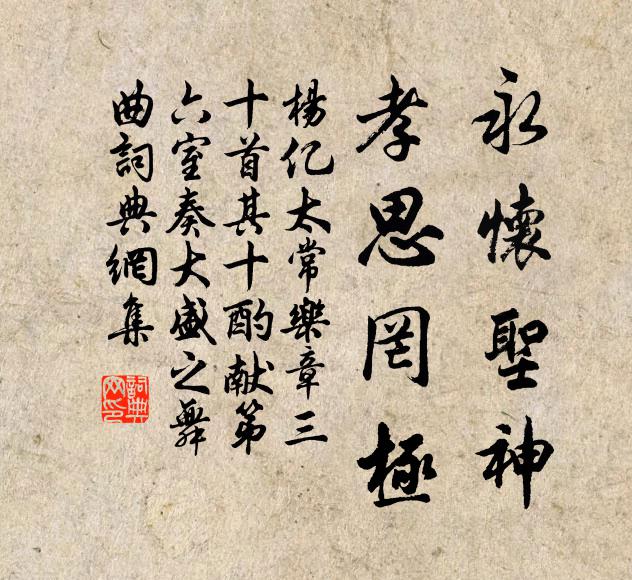 永懷聖神
孝思罔極
楊亿太常樂章三
十首其十酌献第
六室奏大盛之舞
曲詞典網集
詞典网印